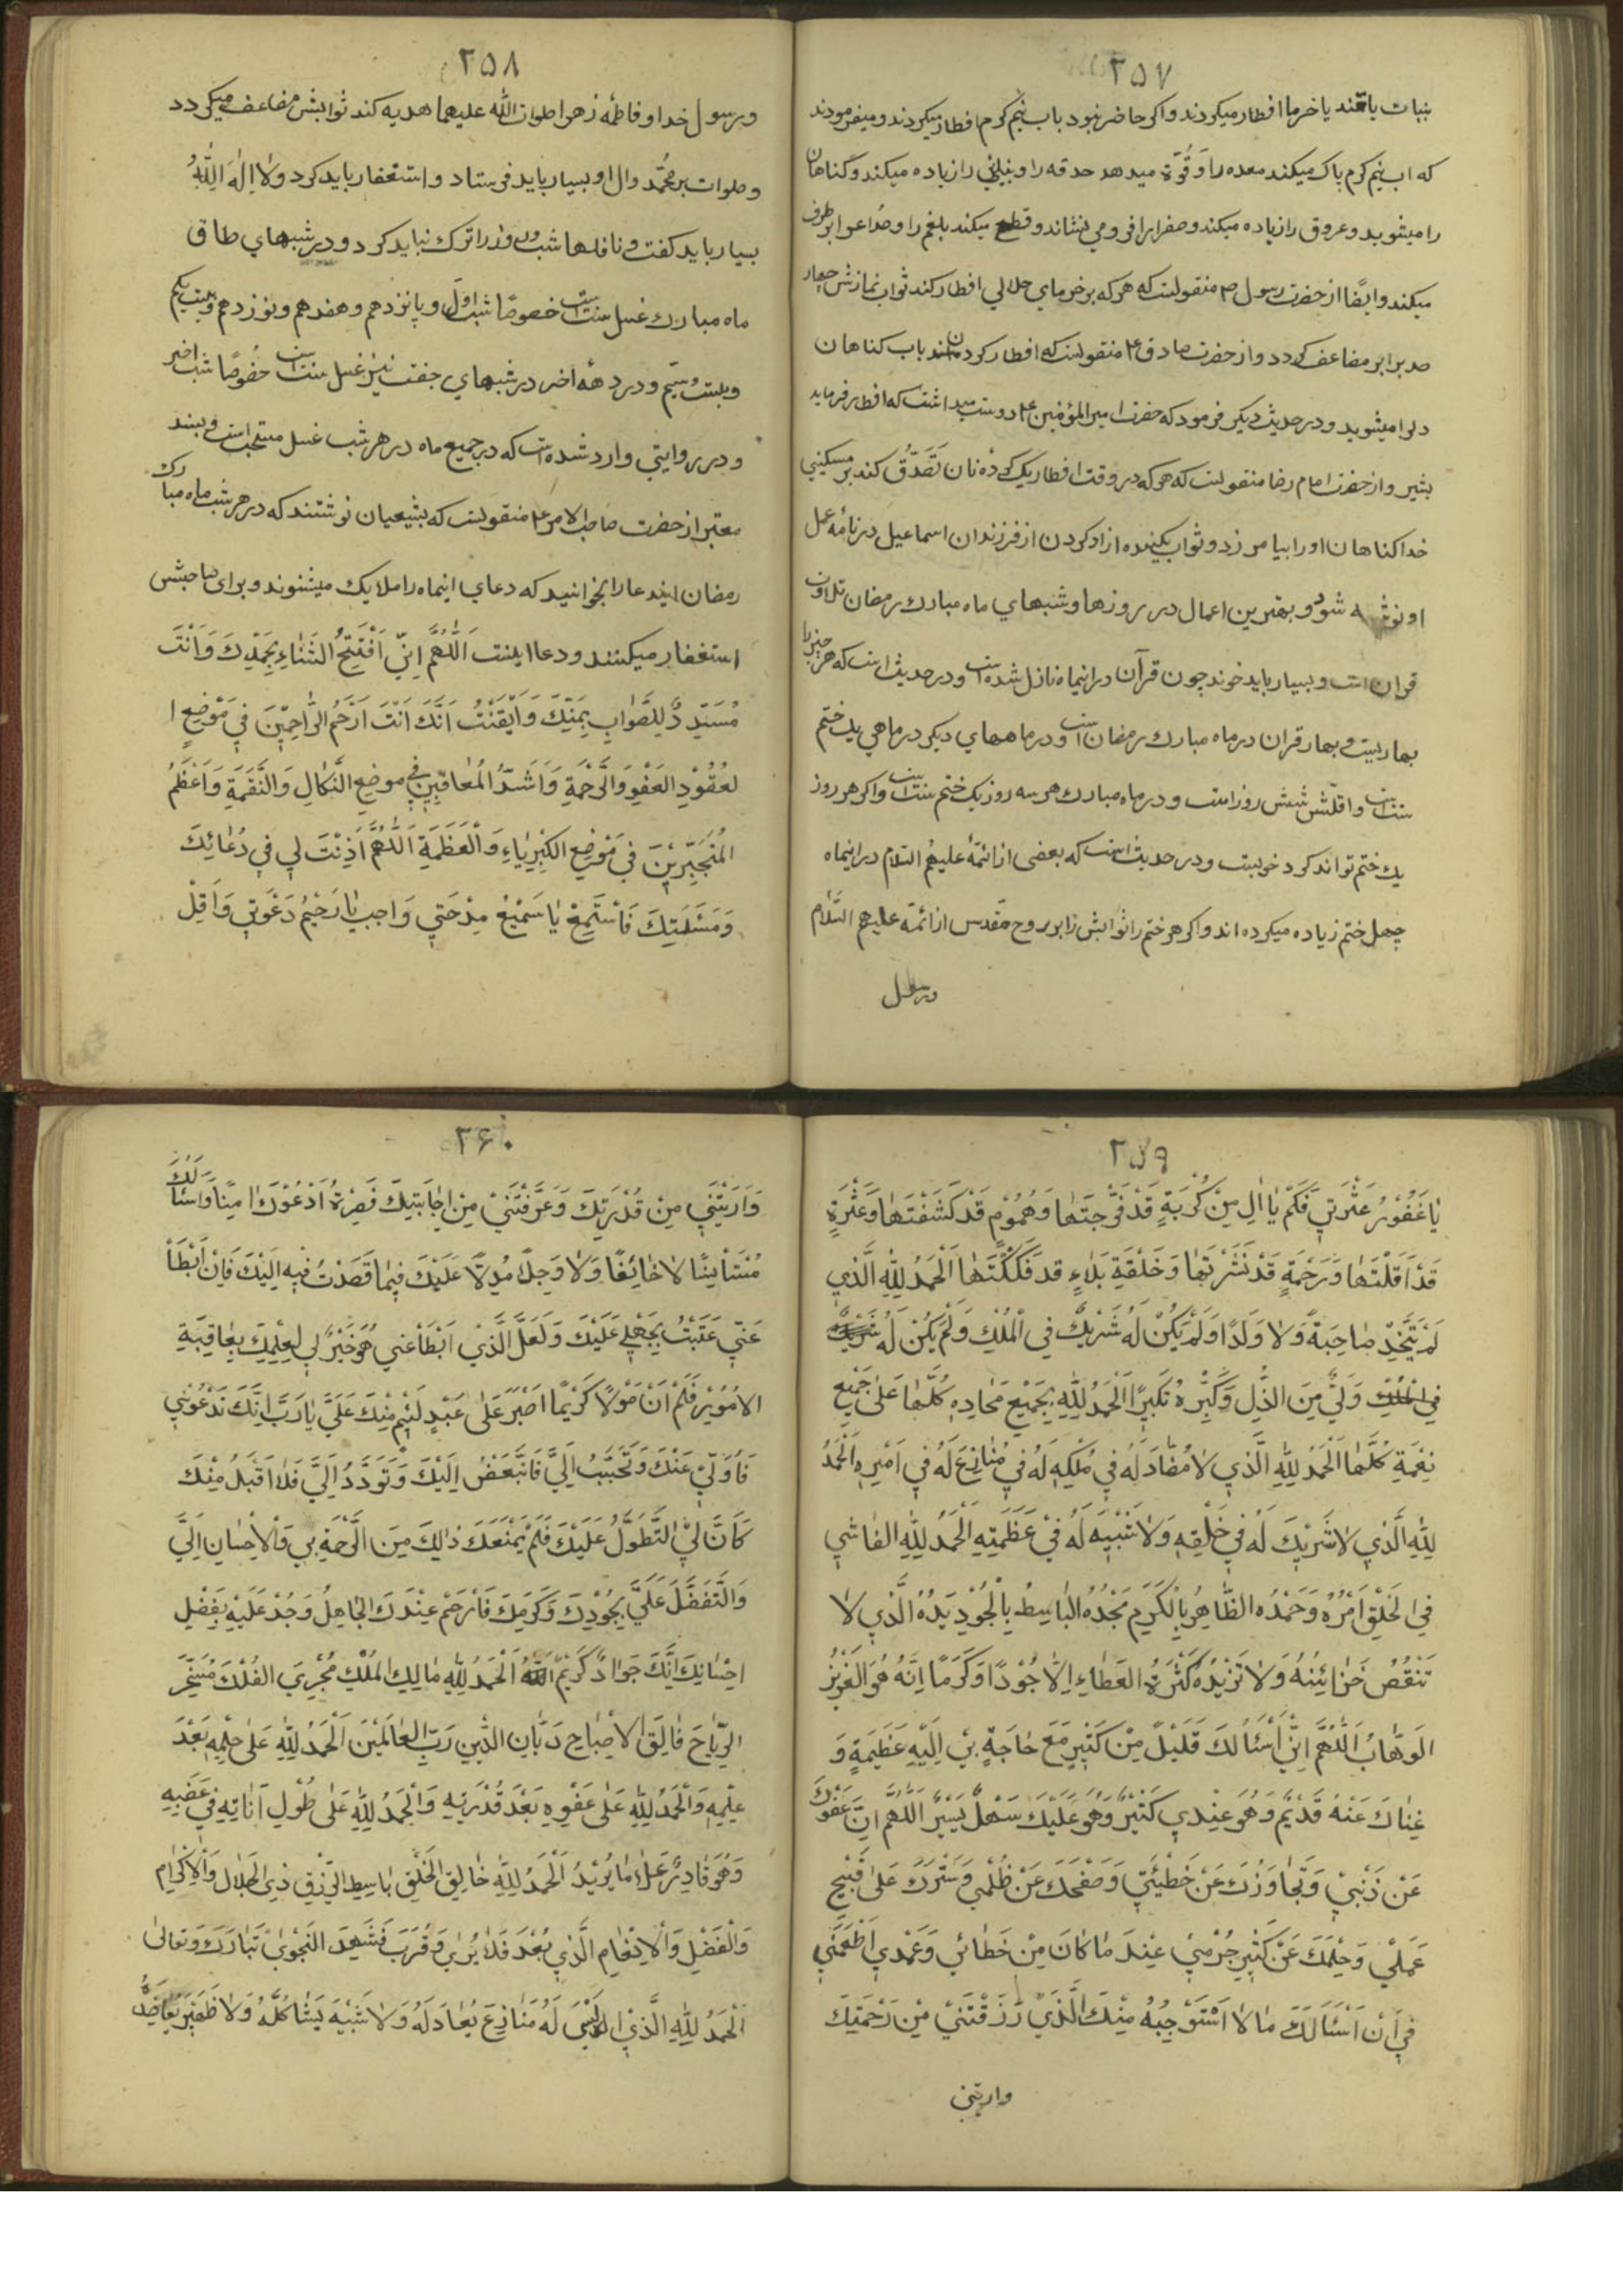 ٢٥٧
بنبات یا قند یا خرما افطار میکردند و اکر حاضر نبود باب نیم کرم افطار میکردند و میفرمودند
که اب نیم کرم پاک میکند معده را و قُوّة میدهد حدقه را و بینایی را زیاده میکند و کناهان
را میشوید و عروق را زیاده میکند و صفرا را فرو می نشاند و قطع میکند بلغم را و صُداع را بر طرف
میکند و ایضًا از حضرت رسول ص منقولست که هر که بر خرمای حلالی افطار کند ثواب نمازش چهار
صد برابر مضاعف کردد و از حضرت صادق ع منقولست که افطار کردن باب کناهان
دلرا میشوید و در حدیث دیکر فرمود که حضرت امیر المؤمنین ع دوست میداشت که افطار فرماید
بشیر و از حضرت امام رضا منقولست که هر که در وقت افطار یک کرده نان تَصَدُّق کند بر مسکینی
خدا کناهان او را بیامرزد و ثواب بکبنده ازاد کردن از فرزندان اسماعیل در نامهٔ عمل
او نوشته شود و بهترین اعمال در روزها و شبهای ماه مبارک رمضان تلاوت
قران است و بسیار باید خوند چون قرآن در اینماه نازل شده است و در حدیث است که هر چیز را
بهاریست و بهار قران در ماه مبارک رمضان است و در ماههای دیکر در ماهی یک ختم
سنت است و اقلّش شش روز است و در ماه مبارک هر سه روز یک ختم سنت است و اکر هر روز
یک ختم تواند کرد خوبست و در حدیث است که بعضی از ائمّهٔ علیهم السلام در اینماه
چهل ختم زیاده میکرده اند و اکر هر ختم را ثوابش را بروح مقّدس از ائمّهٔ علیهم السَّلام
و رسول
٢٥٨
و رسول خدا و فاطمهٔ زهرا صلوات اللّه علیهما هدیه کند ثوابش مضاعف میکردد
و صلوات بر محمّد وال او بسیار باید فرستاد و استغفار باید کرد و لا اِلٰهَ اِلَّا اللّٰهُ
بسیار باید کفت و نافلها شب و روز را ترک نباید کرد و در شبهای طاق
ماه مبارک غسل سنت است خصوصًا شب اوّل و پانزدهم و هفدهم و نوزدهم و بیست یکم
و بیست و سیّم و در دههٔ اخر در شبهای جفت نیز غسل سنت است خصُوصًا شب اخر
و در روایتی وارد شده است که در جمیع ماه در هر شب غسل مستحب است و بسند
معتبر از حضرت صاحب الامر ع منقولست که بشیعیان نوشتند که در هر شب ماه مبارک
رمضان ایندعا را بخوانید که دعای اینماه را ملایک میشنوند و برای صاحبش
استغفار میکنند و دعا اینست اَللّٰهُمَّ اِنّی اَفْتَتِحُ الثَّنَاءِ بِحَمْدِكَ وَ اَنْتَ
مُسَدِّدٌ لِلصَّوٰابِ بِمَنِّكَ وَ اَیْقَنْتُ اَنَّكَ اَنْتَ اَرْحَمُ الرّٰاحِمِّیْنَ فِی مَوْضِعِ ا
لعُقُوْدِ العَفْوِ وَ الرَّحْمَةِ وَ اَشَدُّ الْمُعٰاقِبِیْنَ فِی مَوْضِعِ النَّكٰالِ وَ النَّقِمَةِ وَ اَعْظَمُ
الْمُتَجَبِّرِیْنَ فِی مَوْضِعِ الكِبْرِیٰاءِ وَ الْعَظَمَةِ اَللّٰهُمَّ اَذِنْتَ لِی فِی دُعٰائِكَ
وَ مَسْئَلَتِكَ فَاسْتَمِعْ یٰا سَمِیْعُ مِدْحَتِی وَ اَجِبْ یٰا رَحِیْمُ دَعْوَتِی وَ اَقِلْ
٢٥٩
یٰا غَفُوْرُ عَثْرَتِی فَكَمْ یٰا اِلٰهِی مِنْ كُرْبَةٍ قَدْ فَرَّجْتَهٰا وَ هُمُوْمٍ قَدْ كَشَفْتَهٰا وَ عَثْرَةٍ
قَدْ اَقَلْتَهٰا وَ رَحْمَةٍ قَدْ نَشَرْتَهٰا وَ حَلْقَةِ بَلٰاءٍ قَدْ فَكَكْتَهٰا اَلْحَمْدُ لِلّٰهِ الَّذِی
لَمْ یَتَّخِذْ صٰاحِبَةً وَلٰا وَلَدًا وَ لَمْ یَكُنْ لَهُ شَرِیْكٌ فِی الْمُلْكِ وَ لَمْ یَكُنْ لَهُ
وَلِیٌّ مِنَ الذُّلِ وَ كَبِّرْهُ تَكْبِیْرًا اَلْحَمْدُ لِلّٰهِ بِجَمِیْعِ مَحٰامِدِهِ كُلِّهٰا عَلیٰ جَمِیْعِ
نِعَمِهِ كُلِّهٰا اَلْحَمْدُ لِلّٰهِ الَّذِی لٰا مُضٰادَ لَهُ فِی مُلْكِهِ لَهُ فِی مُنٰازِعَ لَهُ فِی اَمْرِهِ اَلْحَمْدُ
لِلّٰهِ الَّذِی لٰا شَرِیْكَ لَهُ فِی خَلْقِهِ وَ لٰا شَبِیْهَ لَهُ فِیْ عَظَمَتِهِ اَلْحَمْدُ لِلّٰهِ الفٰاشِی
فِی الْخَلْقِ اَمْرُهُ وَ حَمْدُهُ الظّٰاهِرُ بِالْكَرَمِ مَجْدُهُ الْبٰاسِطُ بِالْجُوْدِ یَدُهُ الَّذِی لٰا
تَنْقُصُ خَزٰائِنُهُ وَ لٰا تَزِیْدُهُ كَثْرَةُ العَطٰاءِ اِلّٰا جُوْدًا وَ كَرَمًا اِنَّهُ هُوَ الْعَزِیْزُ
الوَهّٰابُ اَللّٰهُمَّ اِنِّیْ اَسْئَلُكَ قَلِیْلً مِنْ كَثِیْرٍ مَعَ حٰاجَةٍ بِیْ اِلَیْهِ عَظِیْمَةٍ وَ
غِنٰاكَ عَنْهُ قَدِیْمٌ وَ هُوَ عِنْدِی كَثِیْرٌ وَ هُوَ عَلَیْكَ سَهْلٌ یَسِیْرٌ اَللّٰهُمَّ اِنَّ عَفْوَكَ
عَنْ ذَنْبِیْ وَ تَجٰاوُزَكَ عَنْ خَطِیْئَتِی وَ صَفْحَكَ عَنْ ظُلْمِی وَ سَتْرَكَ عَلیٰ قَبِیْحِ
عَمَلِیْ وَ حِلْمَكَ عَنْ كَثِیْرِ جُرْمِیْ عِنْدَ مٰا كٰانَ مِنْ خَطٰائِی وَ عَمْدِی اَطْمَعَنِی
فِی اَنْ اَسْئَلَكَ مٰا لٰا اَسْتَوْجِبُهُ مِنْكَ الَّذِیْ رَزَقْتَنِیْ مِنْ رَحْمَتِكَ
و اریتنی
٢۶٠
وَ اَرَیْتَنِی مِنْ قُدْرَتِكَ وَ عَرَّفْتَنِیْ مِنْ اِجٰابَتِیكَ فَصِرْةُ اَدْعُوْكَ اٰمِنًا وَ اَسْئَلُكَ
مُسْتَأْنِسًا لٰا خٰائِفًا وَ لٰا وَجِلً مُدِلًا عَلَیْكَ فِیمٰا قَصَدْتُ فِیهِ اِلَیْكَ فَاِنْ اَبْطَأَ
عَنّی عَتَبْتُ بِجَهْلِی عَلَیْكَ وَ لَعَلَّ الَّذِیْ اَبْطَأَ عَنی هُوَ خَیْرٌ لِی لِعِلْمِكَ بِعٰاقِبَةِ
الاُمُوْرِ فَلَمْ اَنْ مَوْلًا كَرِیْمًا اَصْبَرَ عَلٰی عَبْدٍ لَئِیْمٍ مِنْكَ عَلَیَّ یٰا رَبِّ اِنَّكَ تَدْعُوْنِی
فَاُوَلّیْ عَنْكَ وَ تَحَبَّبُ اِلَیَّ فَاتَبَّعَضُ اِلَیْكَ وَ تَوَدَّدُ اِلَیَّ فَلٰا اَقْبَلُ مِنْكَ
كَاَنَّ لِیْ التَّطَوُّلُ عَلَیْكَ فَلَمْ یَمْنَعْكَ ذٰالِكَ مِنَ الرَّحْمَةِ بِی وَ الْاِحْسٰانِ اِلَیَّ
وَ التَّفَضُّلَ عَلَیَّ بِجُوْدِكَ وَ كَرَمِكَ فَارْحَمْ عَبْدَكَ الْجٰاهِلُ وَ جُدْ عَلَیْهِ بِفَضْلِ
اِحْسٰانِكَ اِنَّكَ جَوٰادٌ كَرِیْمٌ اَلْحَمْدُ لِلّٰهِ مٰالِكِ الْمُلْكِ مُجْرِیَ الفُلْكَ مُسَخِّرِ
الرِّیٰاحَ فٰالِقَ الْاِصْبٰاحِ دَیّٰانِ الدِّیْنِ رَبِّ الْعٰالَمِیْنَ اَلْحَمْدُ لِلّٰهِ عَلیٰ حِلْمِهِ بَعْدَ
عِلْمِهِ وَ الْحَمْدُ لِلّٰهِ عَلٰی عَفْوِهِ بَعْدَ قُدْرَتِهِ وَ الْحَمْدُ لِلّٰهِ عَلٰی طُوْلِ اَنٰاتِهِ فِی غَضَبِهِ
وَ هُوَ قٰادِرٌ عَلٰی مٰا یُرِیْدُ اَلْحَمْدُ لِلّٰهِ خٰالِقِ الْخَلْقِ بٰاسِطِ الرِّزْقِ ذِی الْجَلٰالِ وَ الْاِكْرٰامِ
وَ الْفَضْلِ وَ الْاِنْعٰامِ الَّذِی بَعُدَ فَلٰا یُرٰی وَ قَرُبَ فَشَهِدَ النَّجْوٰیْ تَبٰارَكَ وَ تَعٰالیٰ
اَلْحَمْدُ لِلّٰهِ الَّذِیْ لَیْسَ لَهُ مُنٰازِعَ یُعٰادِلَهُ وَ لٰا شَبِیْهَ یُشٰاكُلَهُ وَ لٰا ظَهِیْرَ یُعٰاضِدُهُ